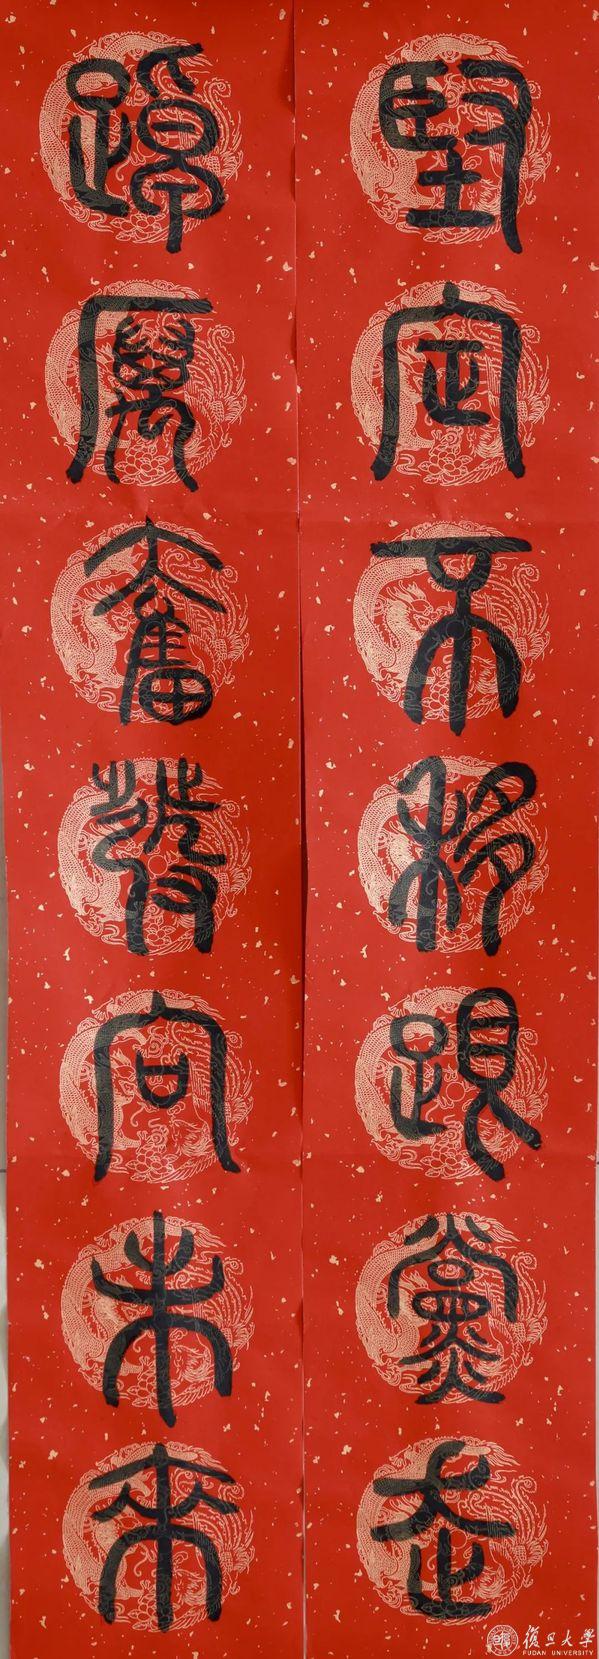 堅定不移跟黨走
踔厲奮發向未來
復旦大學
FUDAN UNIVERSITY